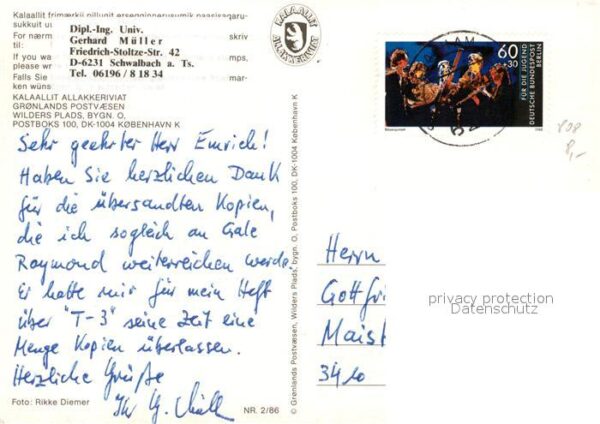 Kalaallit frimærkii pillugit
sukkuit
For nærm skriv
til:
If you wa stamps,
please wr
Falls Sie
ken wüns
Dipl.-Ing. Univ.
Gerhard Müller
Friedrich-Stoltze-Str. 42
D-6231 Schwalbach a. Ts.
Tel. 06196 / 8 18 34
KALAALLIT ALLAKKERIVIAT
GRØNLANDS POSTVÆSEN
WILDERS PLADS, BYGN. O,
POSTBOKS 100, DK-1004 KØBENHAVN K
KALAALLIT
ALLAKKERIVIAT
60
+30
FÜR DIE JUGEND
DEUTSCHE BUNDESPOST
BERLIN
1988
808
8,-
Sehr geehrter Herr Emrich!
Haben Sie herzlichen Dank
für die übersandten Kopien,
die ich sogleich an Gale
Raymond weiterreichen werde.
Er hatte mir für mein Heft
über "T-3" seine Zeit eine
Menge Kopien überlassen.
Herzliche Grüße
Ihr G. Müller
Foto: Rikke Diemer
NR. 2/86
© Grønlands Postvæsen, Wilders Plads, bygn. O, Postboks 100, DK-1004 København K
Herrn
Gottfri
Maist
3410
privacy protection
Datenschutz